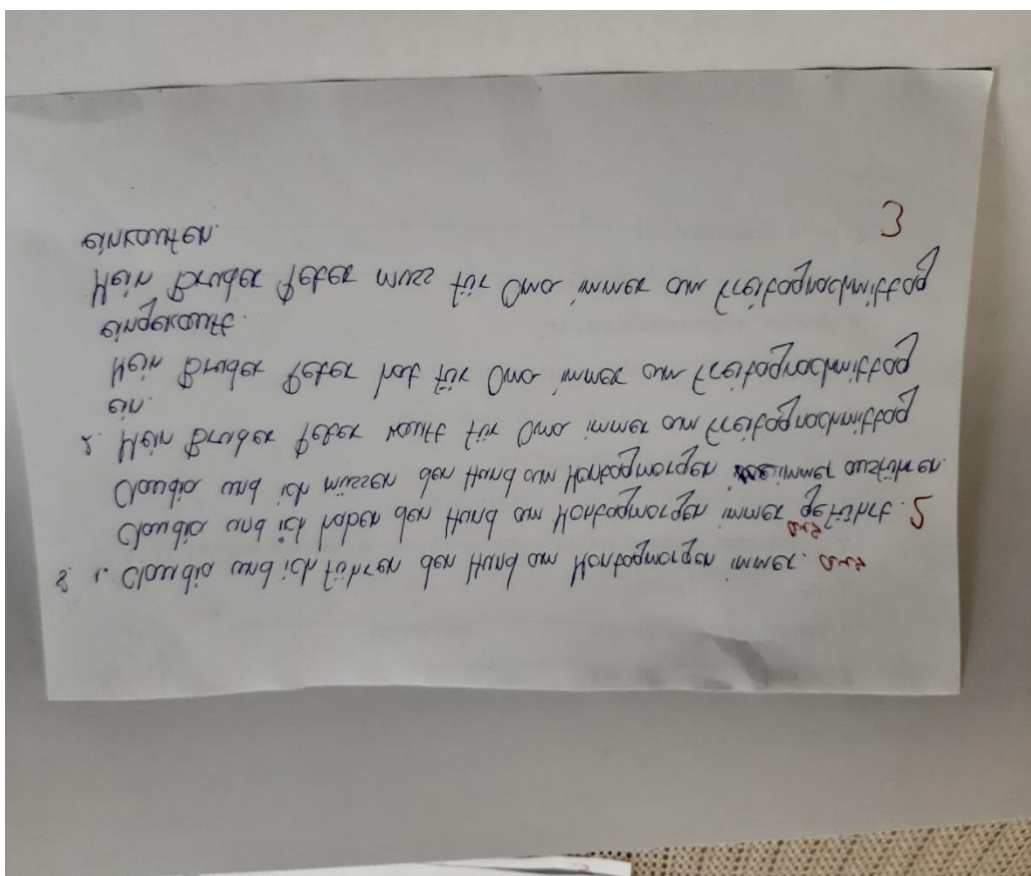 8. 1. Claudia und ich führen den Hund am Montagmorgen immer. aus
Claudia und ich haben den Hund am Montagmorgen immer ausgeführt. 2
Claudia und ich müssen den Hund am Montagmorgen immer ausführen.
2. Mein Bruder Peter kauft für Oma immer am Freitagnachmittag
ein.
Mein Bruder Peter hat für Oma immer am Freitagnachmittag
eingekauft.
Mein Bruder Peter muss für Oma immer am Freitagnachmittag
einkaufen.
3